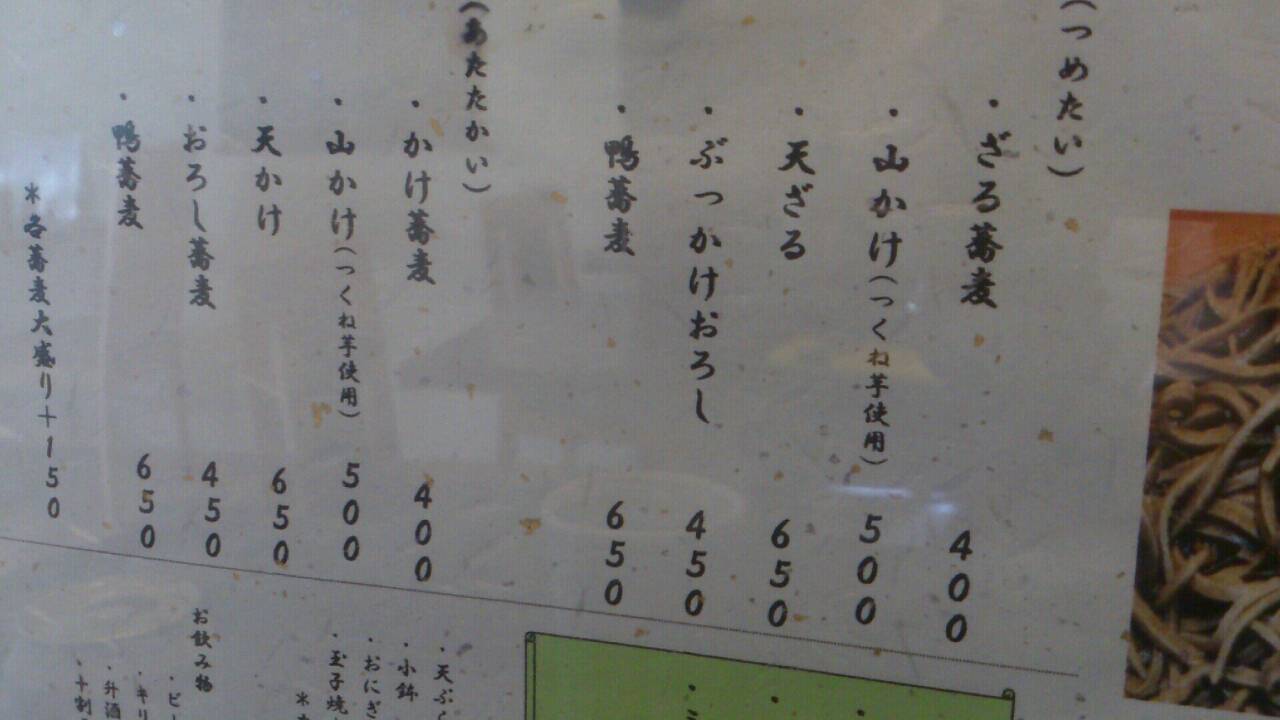 (つめたい)
・ざる蕎麦 400
・山かけ(つくね芋使用) 500
・天ざる 650
・ぶっかけおろし 450
・鴨蕎麦 650
(あたたかい)
・かけ蕎麦 400
・山かけ(つくね芋使用) 500
・天かけ 650
・おろし蕎麦 450
・鴨蕎麦 650
*各蕎麦大盛り+150
・天ぷ
・小鉢
・おにぎ
・玉子焼
お飲み物
・ビー
・キリ
・升酒
・十割